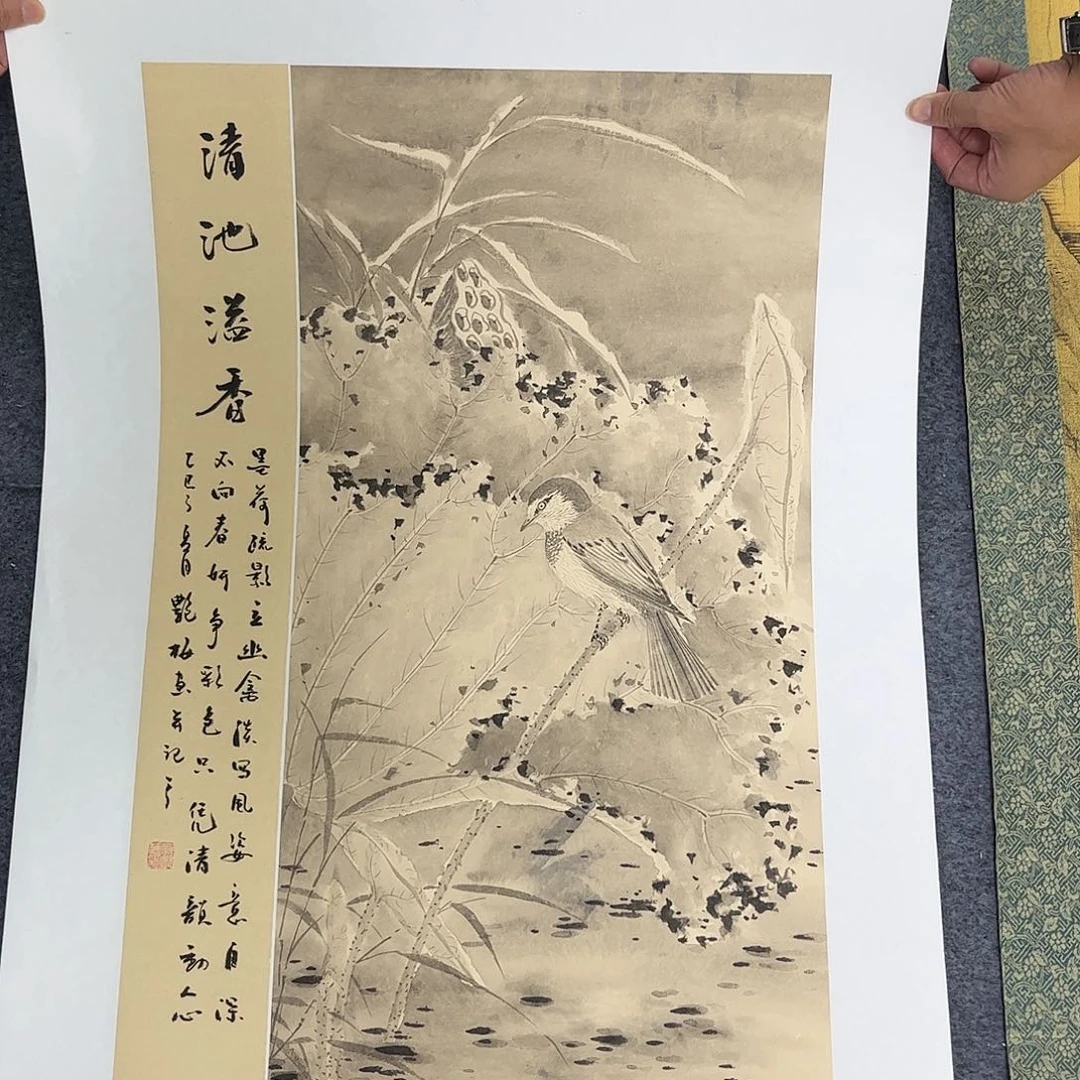 清池溢香
墨荷疏影立幽禽淡写風姿意自深
不向春妍争彩色只凭清韻動人心
乙巳之月艷梅画并记之